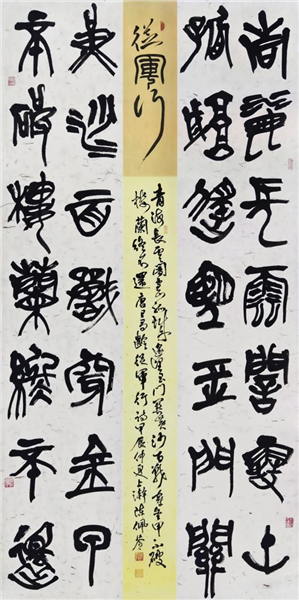 青海長雲闇雪山
孤城遙望玉門關
從軍行
青海長雲闇雪山孤城遙望玉門關黃沙百戰穿金甲不破
樓蘭終不還唐王昌齡從軍行詩甲辰仲夏上澣
黃沙百戰穿金甲
不破樓蘭終不還